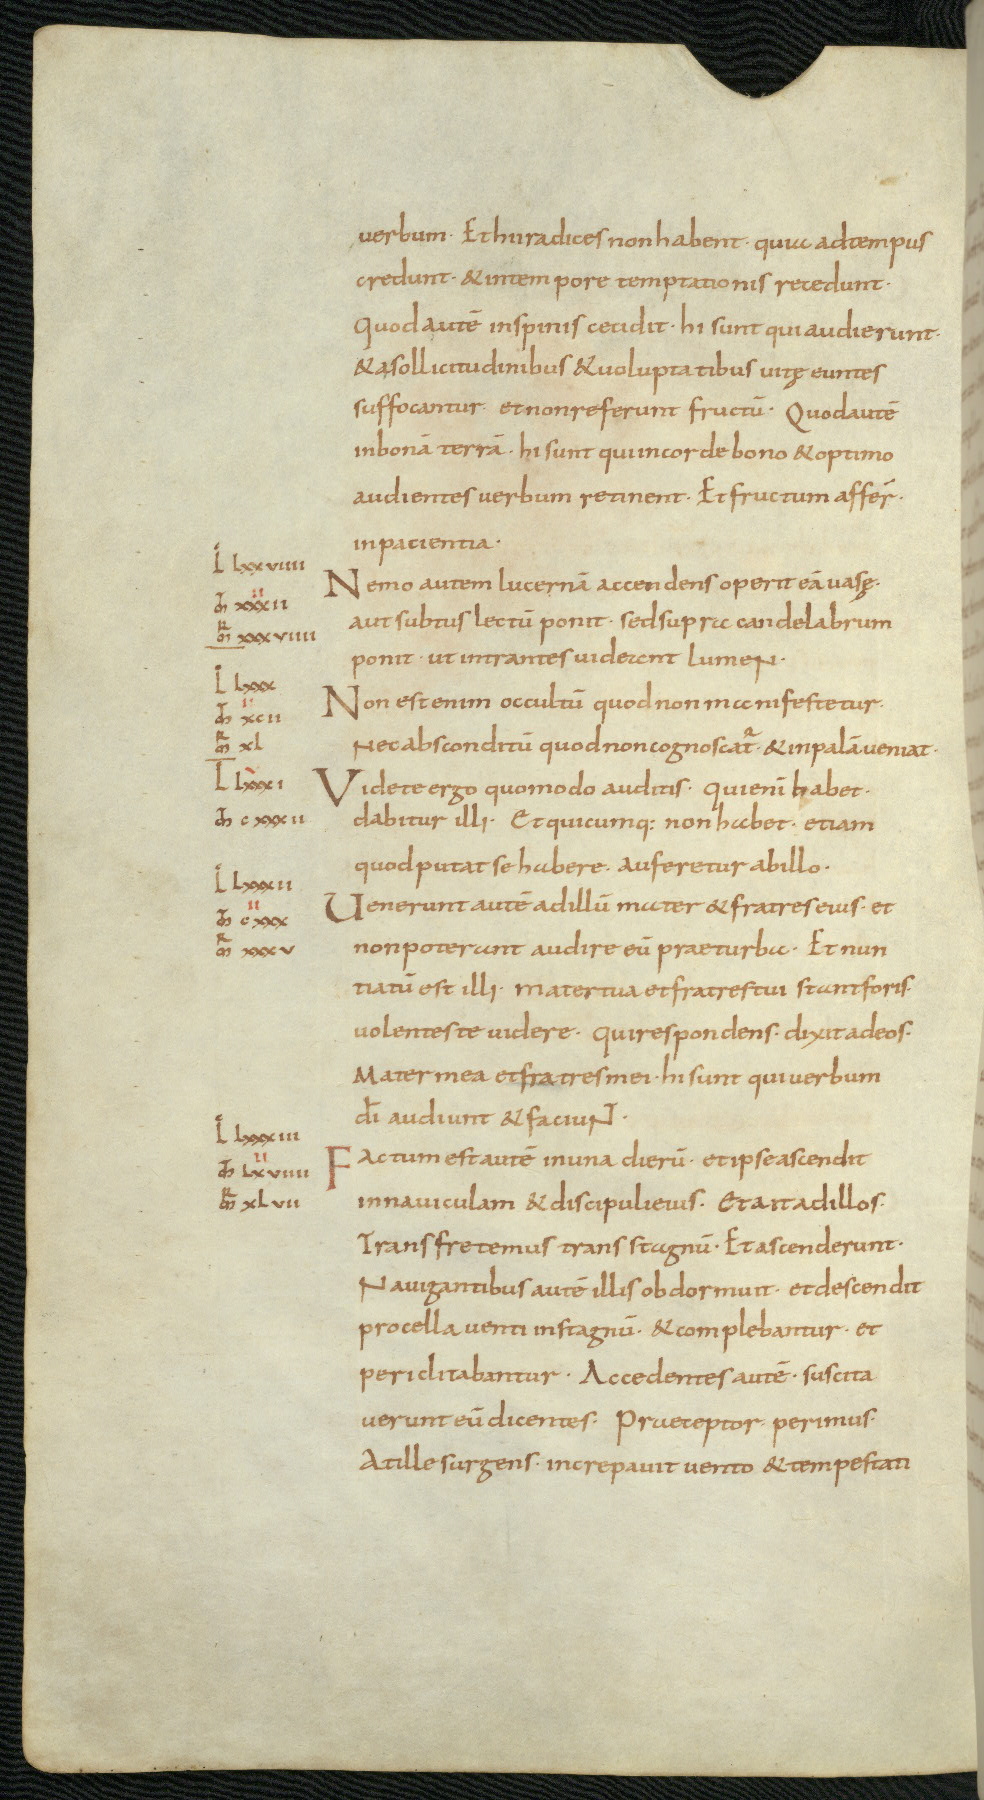 verbum· Et hii radices non habent· quia ad tempus
credunt· & in tempore temptationis recedunt·
Quod autē in spinis cecidit· hi sunt qui audierunt·
& a sollicitudinibus & voluptatibus vitę euntes
suffocantur· et non referunt fructū· Quod autē
in bonā terrā· hi sunt qui in corde bono & optimo
audientes verbum retinent· Et fructum affer̄·
in pacientia·
L lxxviiii
Nemo autem lucernā accendens operit eā vasę·
M xxxii
II
aut subtus lectū ponit· sed supra candelabrum
MR xxxviiii
ponit· ut intrantes videant lumen·
L lxxx
Non est enim occultū quod non manifestetur·
M xcii
II
Nec absconditū quod non cognoscat̄· & in palā veniat·
MR xl
L lxxxi
V
Videte ergo quomodo auditis· Qui eni̅ habet·
M cxxxii
dabitur illi· Et quicumq; non habet· etiam
quod putat se habere· auferetur ab illo·
L lxxxii
Uenerunt autē ad illū mater & fratres eius· et
M cxxx
II
non poterant audire eū prae turba· Et nun
MR xxxv
tiatū est illi· mater tua et fratres tui stant foris·
volentes te videre· Qui respondens· dixit ad eos·
Mater mea et fratres mei· hi sunt qui verbum
dī audiunt & faciunt·
L lxxxiii
Factum est autē in una dierū· et ipse ascendit
M lxviiii
II
in naviculam & discipuli eius· Et ait ad illos·
MR xlvii
Transfretemus trans stagnū· Et ascenderunt·
Navigantibus autē illis obdormuit· et descendit
procella venti in stagnū· & complebantur· et
periclitabantur· Accedentes autē· suscita
verunt eū dicentes· Praeceptor· perimus·
At ille surgens· increpavit vento & tempestati